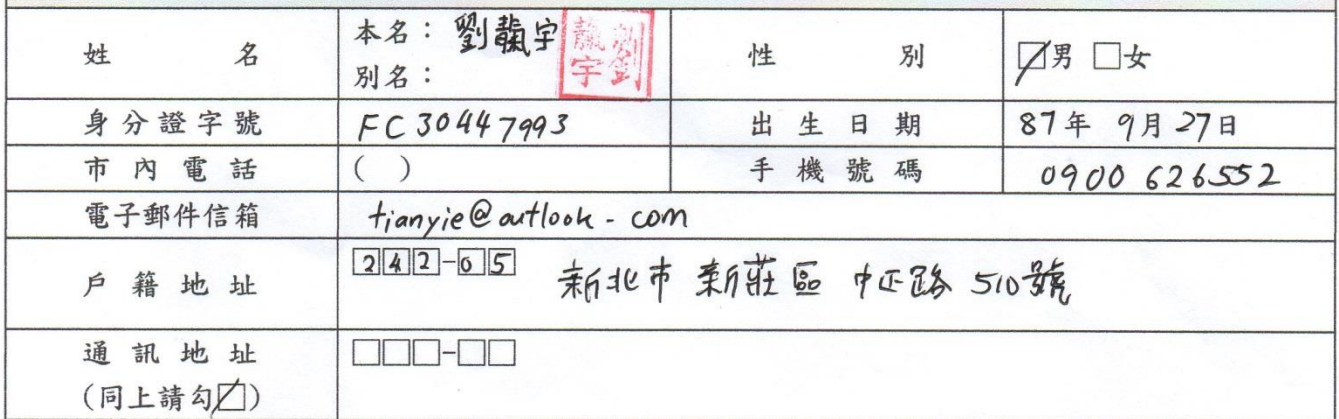 姓名 本名：劉靝宇 性別 ☑男 □女
別名：
劉靝宇
身分證字號 FC30447993 出生日期 87年 9月27日
市內電話 ( ) 手機號碼 0900 626552
電子郵件信箱 tianyie@outlook.com
戶籍地址 242-05 新北市 新莊區 中正路 510號
通訊地址 □□□-□□
(同上請勾☑)